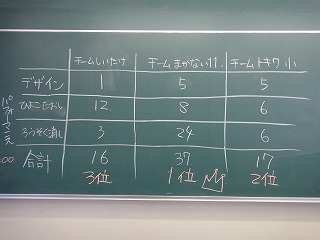 チームしいたけ チームまかないけ チームトキワ小
デザイン 1 5 5
ひよこでおし 12 8 6
ろうそく消し 3 24 6
合計 16 37 17
3位 1位 2位